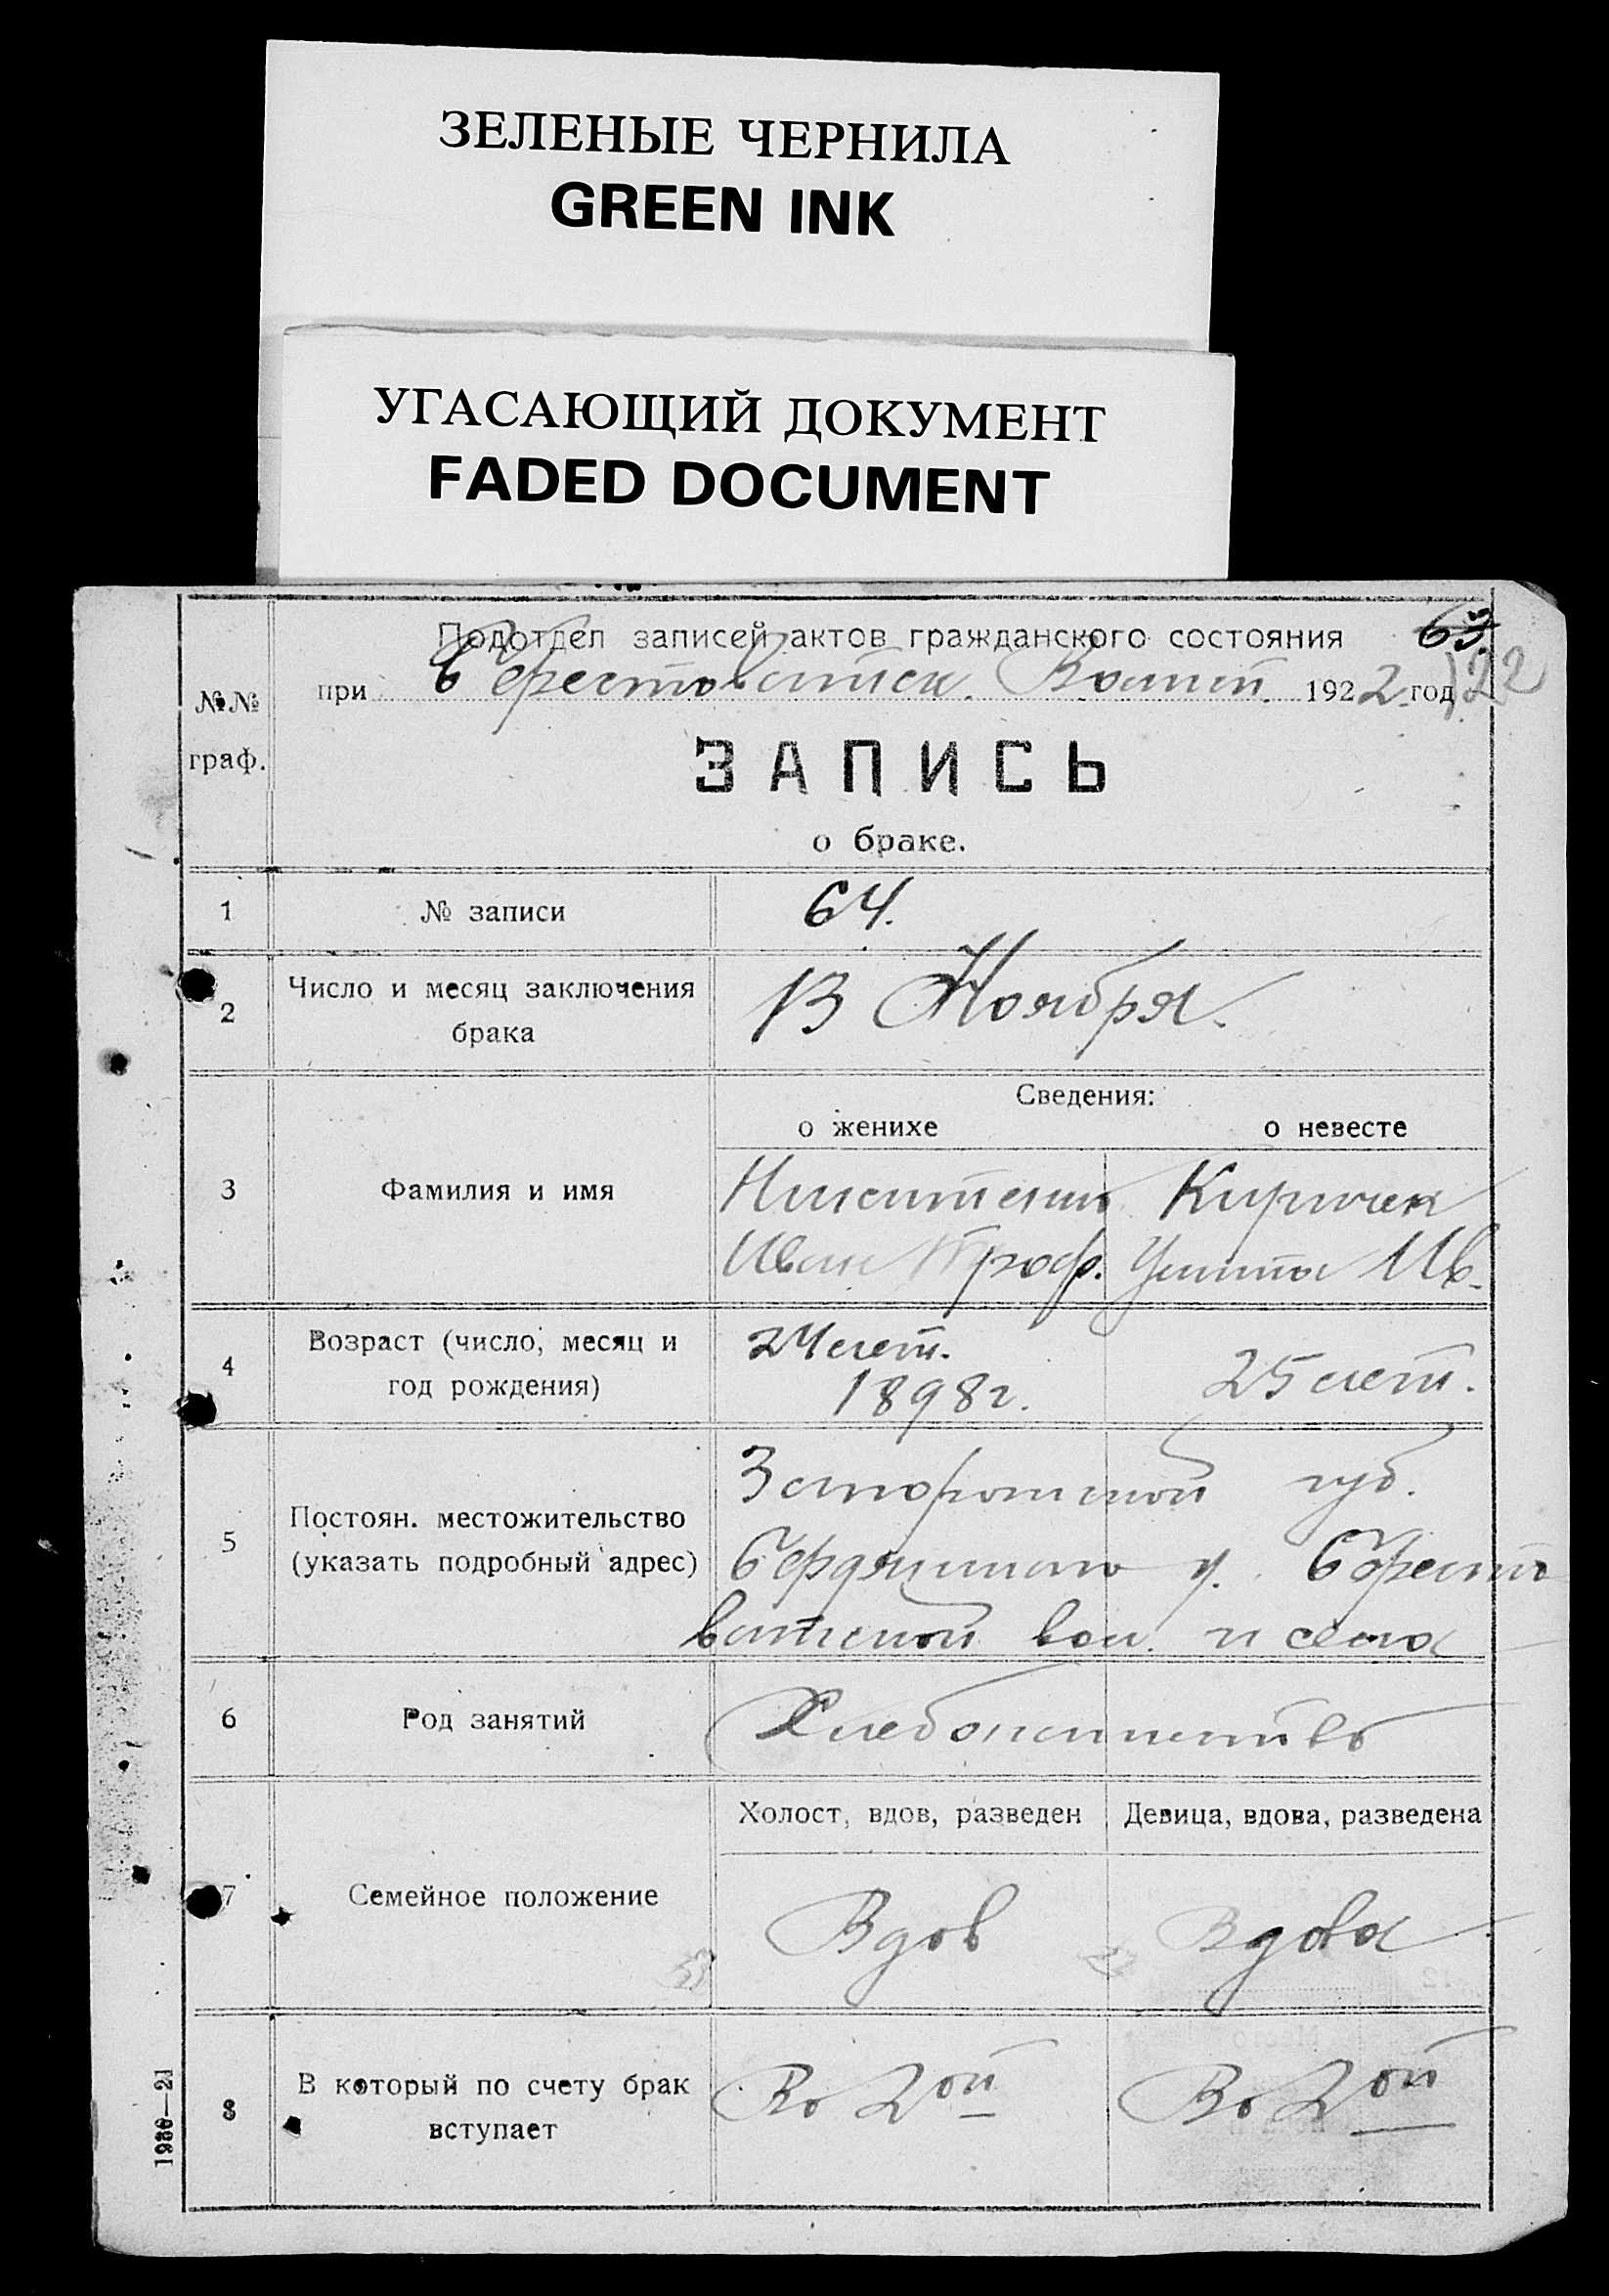 ЗЕЛЕНЫЕ ЧЕРНИЛА
GREEN INK
УГАСАЮЩИЙ ДОКУМЕНТ
FADED DOCUMENT
Подотдел записей актов гражданского состояния 63
при 1922 год 122
№№
граф.
ЗАПИСЬ
о браке.
1 № записи 64.
2 Число и месяц заключения
брака
13 Ноября.
Сведения:
о женихе о невесте
3 Фамилия и имя
Никитенко Киричек
Иван Троф. Ив.
4 Возраст (число, месяц и
год рождения)
24 лет.
1898 г. 25 лет.
5 Постоян. местожительство
(указать подробный адрес)
Запорожской губ.
Бердянского у. Бересто
ватской вол. и села
6 Род занятий
Хлебопашество
Холост, вдов, разведен Девица, вдова, разведена
7 Семейное положение
Вдов Вдова
8 В который по счету брак
вступает
Во 2ой Во 2ой
1930—21